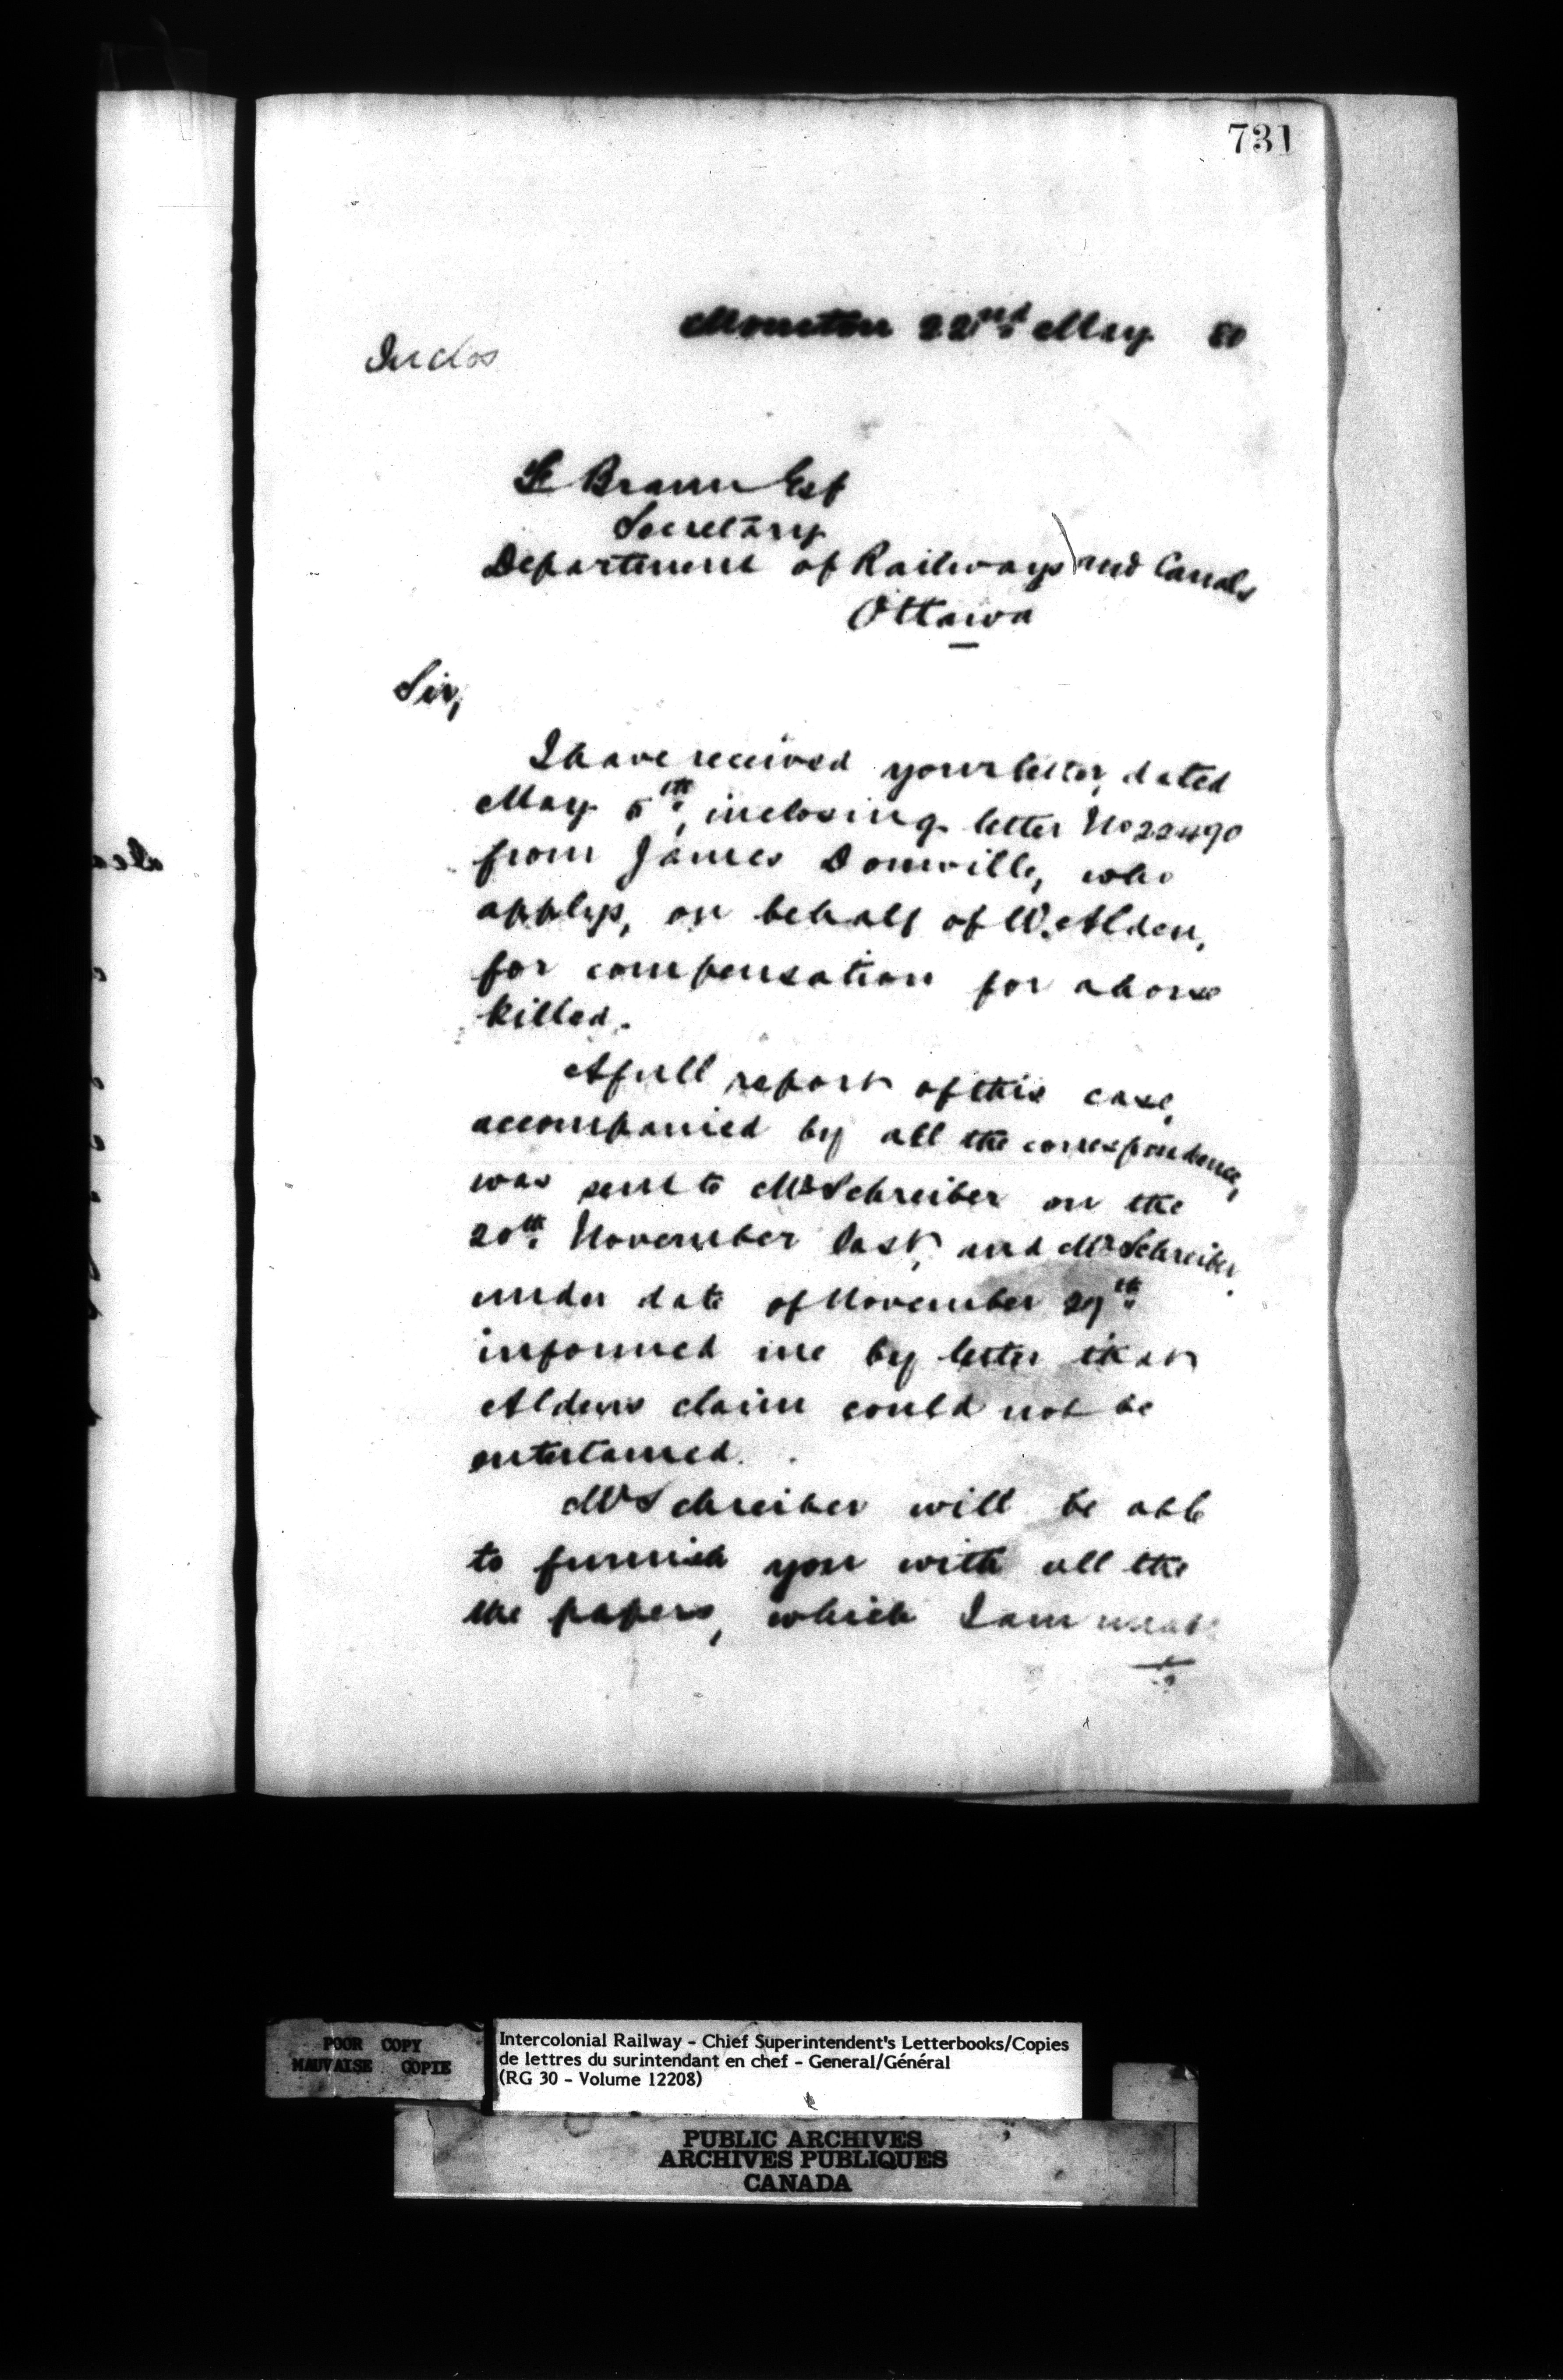 731
Moncton 22nd May 80
Inclos
F Braun Esq
Secretary
Department of Railways and Canals
Ottawa
Sir,
I have received your letter, dated
May 5th, inclosing letter No 22490
from James Domville, who
applys, on behalf of W. Alden,
for compensation for a horse
killed.
A full report of this case,
accompanied by all the correspondence,
was sent to Mr Schreiber on the
20th November last, and Mr Schreiber
under date of November 29th
informed me by letter that
Aldens claim could not be
entertained.
Mr Schreiber will be able
to furnish you with all the
the papers, which I am
POOR COPY
MAUVAISE COPIE
Intercolonial Railway - Chief Superintendent's Letterbooks/Copies
de lettres du surintendant en chef - General/Général
(RG 30 - Volume 12208)
PUBLIC ARCHIVES
ARCHIVES PUBLIQUES
CANADA